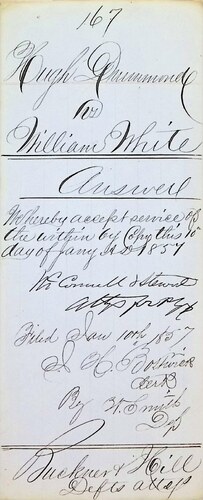 167
Hugh Drummond
vs
William White
Answer
We hereby accept service of
the within by Copy this 10
day of Jany A.D. 1857
McConnell & Stewart
attys for Plff
Filed Jan 10th 1857
J H Bostwick
Clerk
By H. Smith
Dep
Buckner & Hill
Defts attys